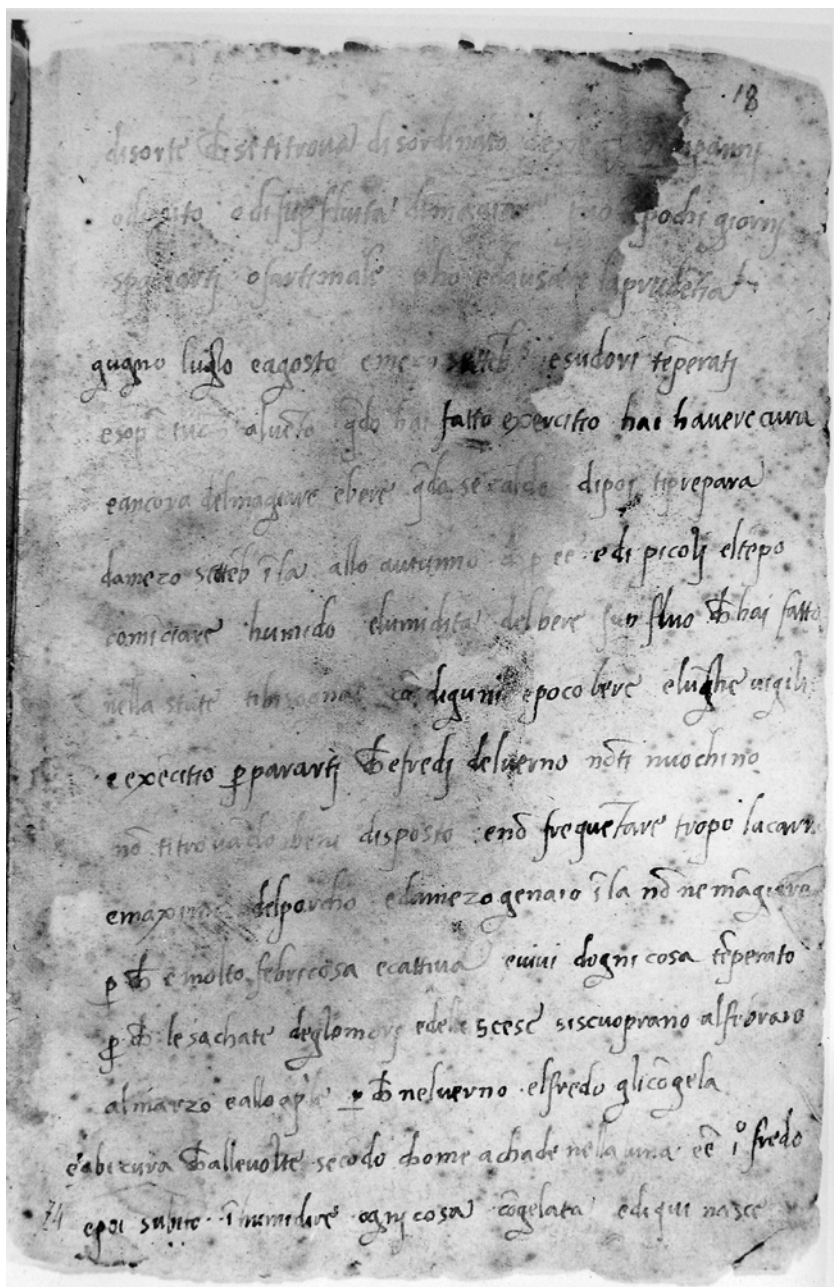 18
disorte ch̄ seti trova disordinato panni
o di sup̄fluita pochi giorni
o farti male laprudētia
gugno luglo eagosto e mezo setteb esudori tēperati
esop̄ q̄do hai fatto exercitio hai havere cura
eancora del māgiare ebere q̄do se caldo dipoi tiprepara
damezo setteb īla allo autunno ch̄ p eē edi picolj eltēpo
comīciare humido elumidita delbere fluo ch̄ hai fatto
nella state tibisogna cō diguni epoco bere elūghe vigili
e exercitio p̄ pararti ch̄ efredj delverno nōti nuochino
nō titrovādo bene disposto enō frequētare tropo lacarn
emaxime delporcho edamezo genaio īla nō ne māgiare
p̄ ch̄ e molto febricosa ecattiva evivi dogni cosa tēperato
p̄ ch̄ lesachate deglomorj edele scese siscuoprano alfebraro
almarzo eallo ap̄le p̄ ch̄ nelverno elfredo glicōgela
e abi cura ch̄ allevolte secōdo chome achade nella una eē īº fredo
74 epoi subito īhumidire ognj cosa cōgelata ediqui nasce